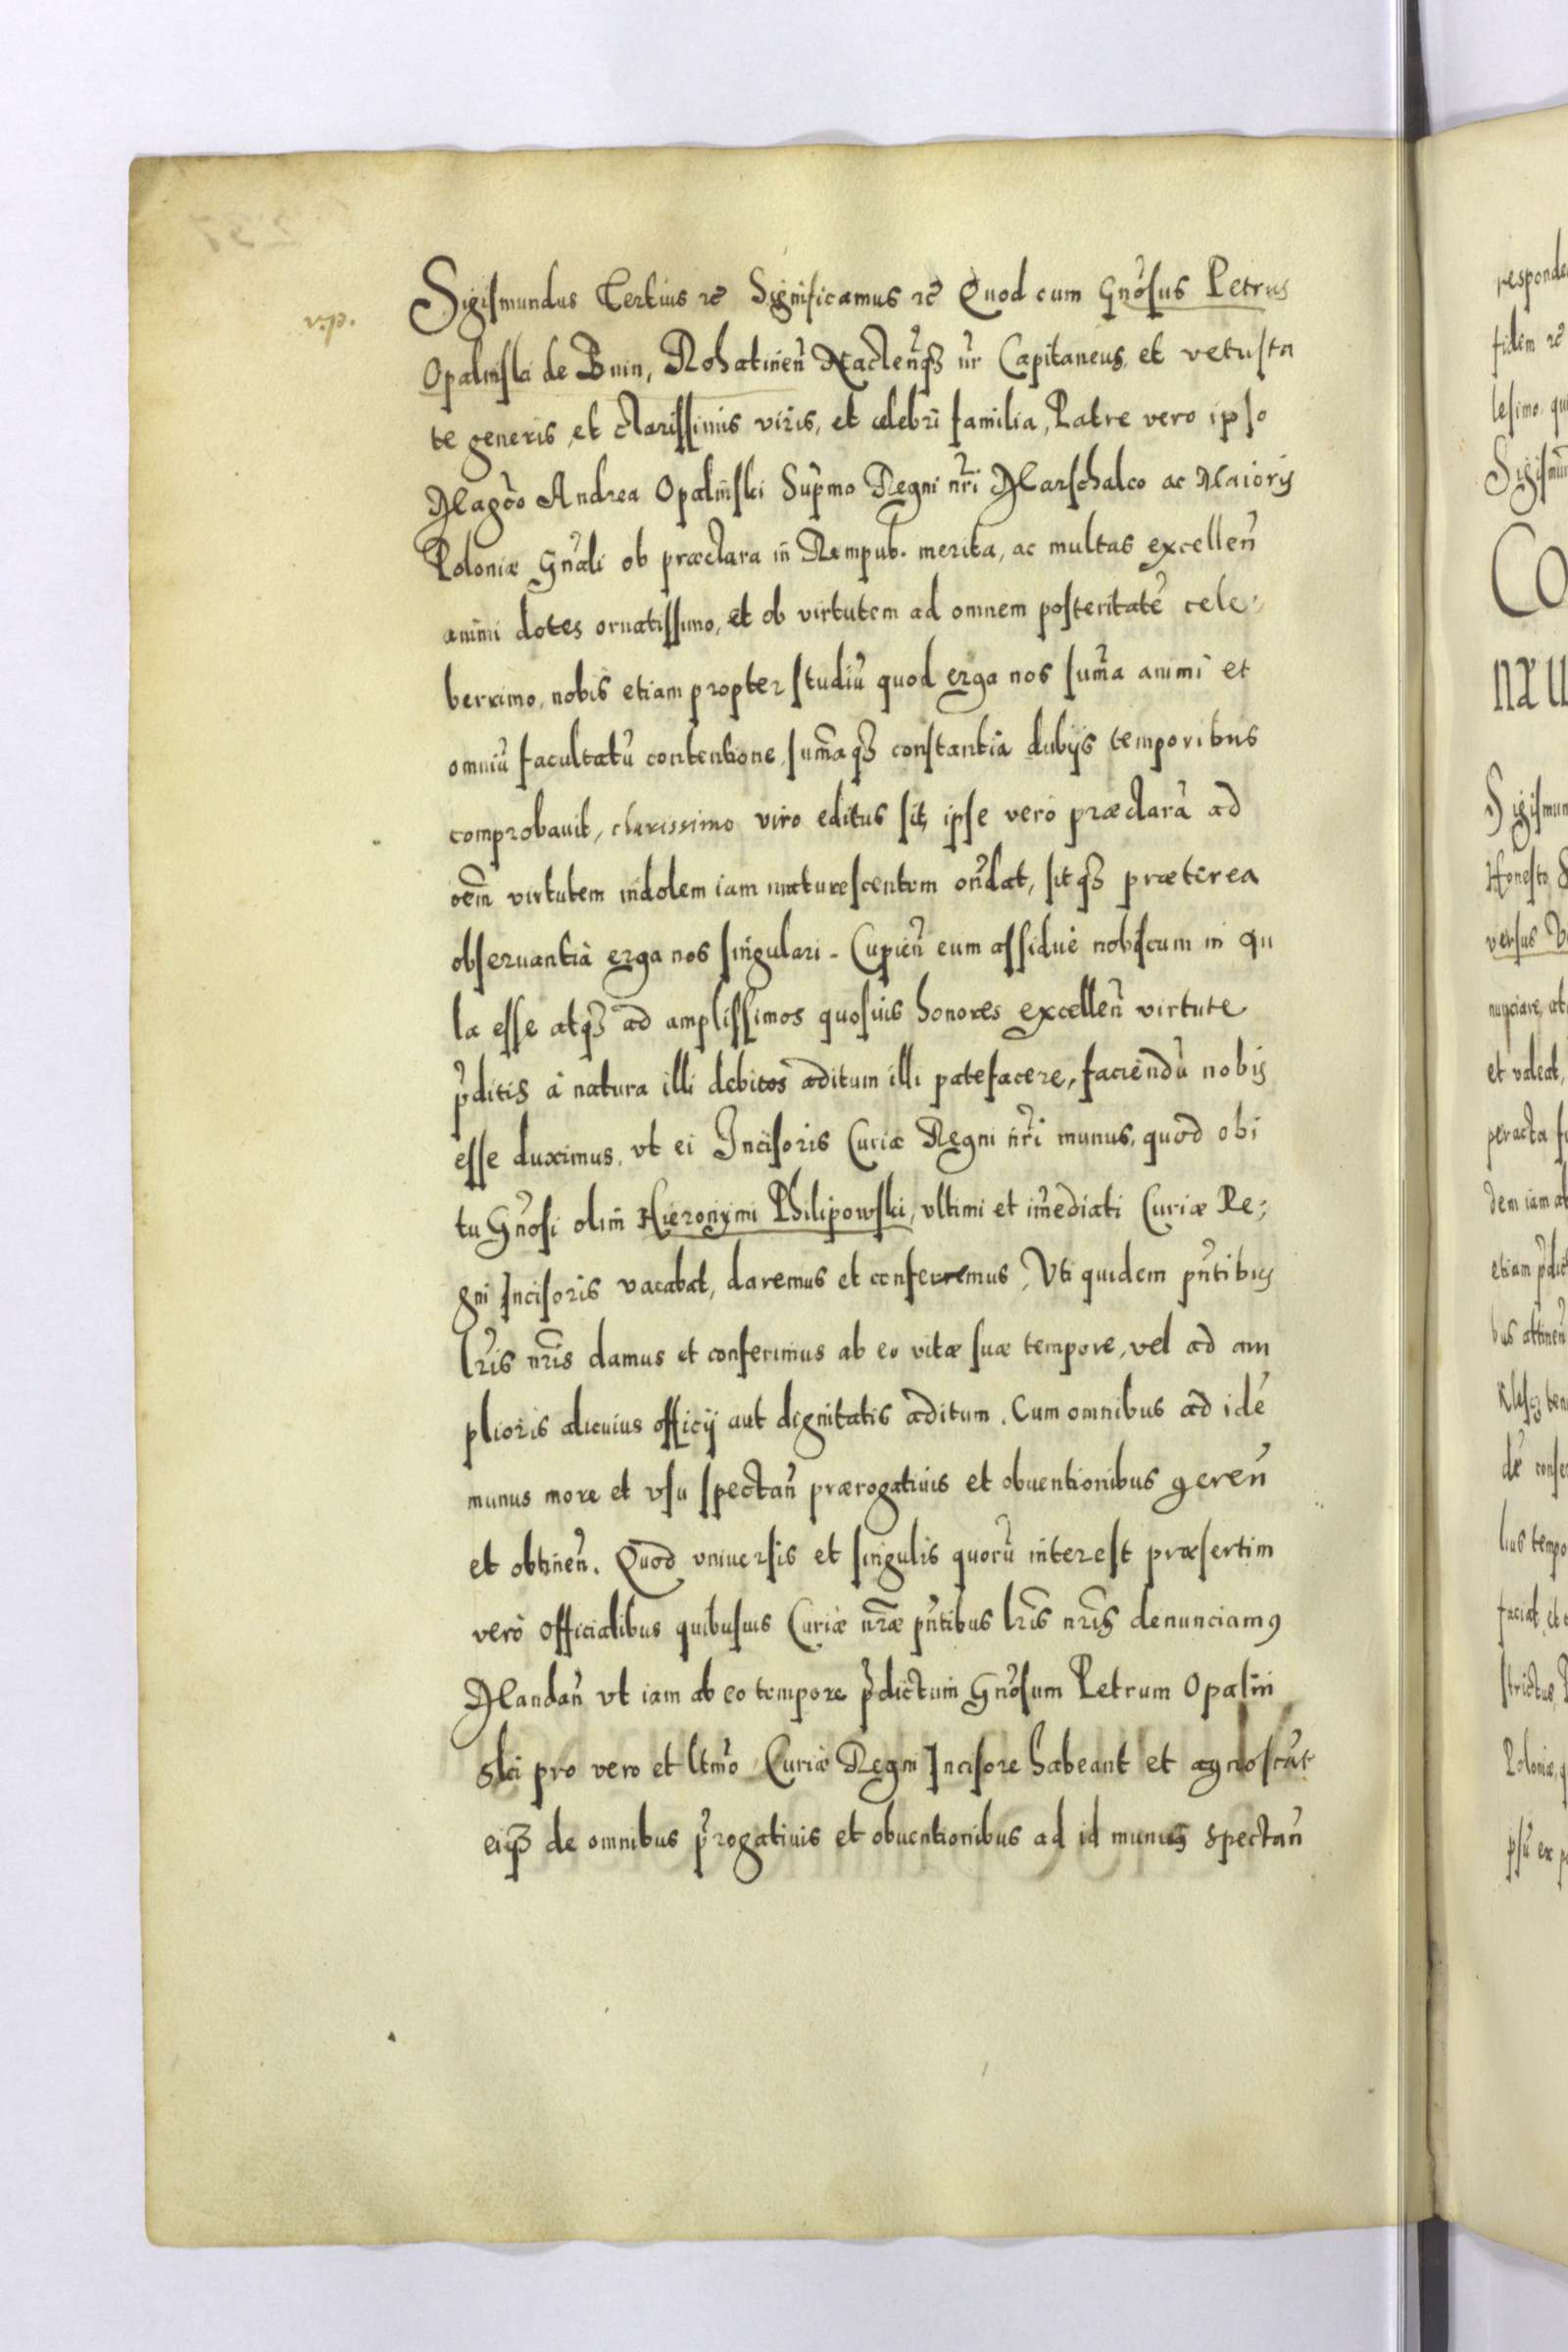 Sigismundus Tertius rc̄ Significamus rc̄ Quod cum Gnõsus Petrus
Opalinski de Bnin, Rohatineñ Nacleñqꝫ nr̃ Capitaneus, et vetusta
te generis et clarissimis viris, et celebri familia, Patre vero ipso
Magc̃o Andrea Opalinski Sup̃mo Regni nr̃i Marschalco ac Maioris
Poloniæ Gnãli ob præclara in Rempub. merita, ac multas excelleñ
animi dotes ornatissimo, et ob virtutem ad omnem posteritatẽ cele:
berrimo, nobis etiam propter studiũ quod erga nos sum̃a animi et
omniũ facultatũ contentione, sum̃aqꝫ constantia dubijs temporibus
comprobauit, clarissimo viro editus sit, ipse vero præclarâ ad
oẽm virtutem indolem iam maturescentem oñdat, sitqꝫ præterea
obseruantiâ erga nos singulari. Cupieñ eum assiduè nobiscum in au
la esse atqꝫ ad amplissimos quosuis honores excelleñ virtute
p̃ditis à natura illi debitos aditum illi patefacere, faciendũ nobis
esse duximus, vt ei Incisoris Curiæ Regni nr̃i munus, quod obi
tu Gñosi olim Hieronymi Philipowski, vltimi et im̃ediati Curiæ Re:
gni Incisoris vacabat, daremus et conferremus, Vti quidem pñtibus
lr̃is nr̃is damus et conferimus ab eo vitæ suæ tempore, vel ad am
plioris alicuius officij aut dignitatis aditum. Cum omnibus ad idẽ
munus more et vsu spectañ prærogatiuis et obuentionibus gereñ
et obtineñ. Quod vniuersis et singulis quorũ interest præsertim
verò officialibus quibusuis Curiæ nr̃æ pñtibus lr̃is nr̃is denunciamꝰ
Mandañ vt iam ab eo tempore p̃dictum Gnõsum Petrum Opalin
ski pro vero et ltm̃o Curiæ Regni Incisore habeant et agnoscãt
eiqꝫ de omnibus p̃rogatiuis et obuentionibus ad id munus spectañ